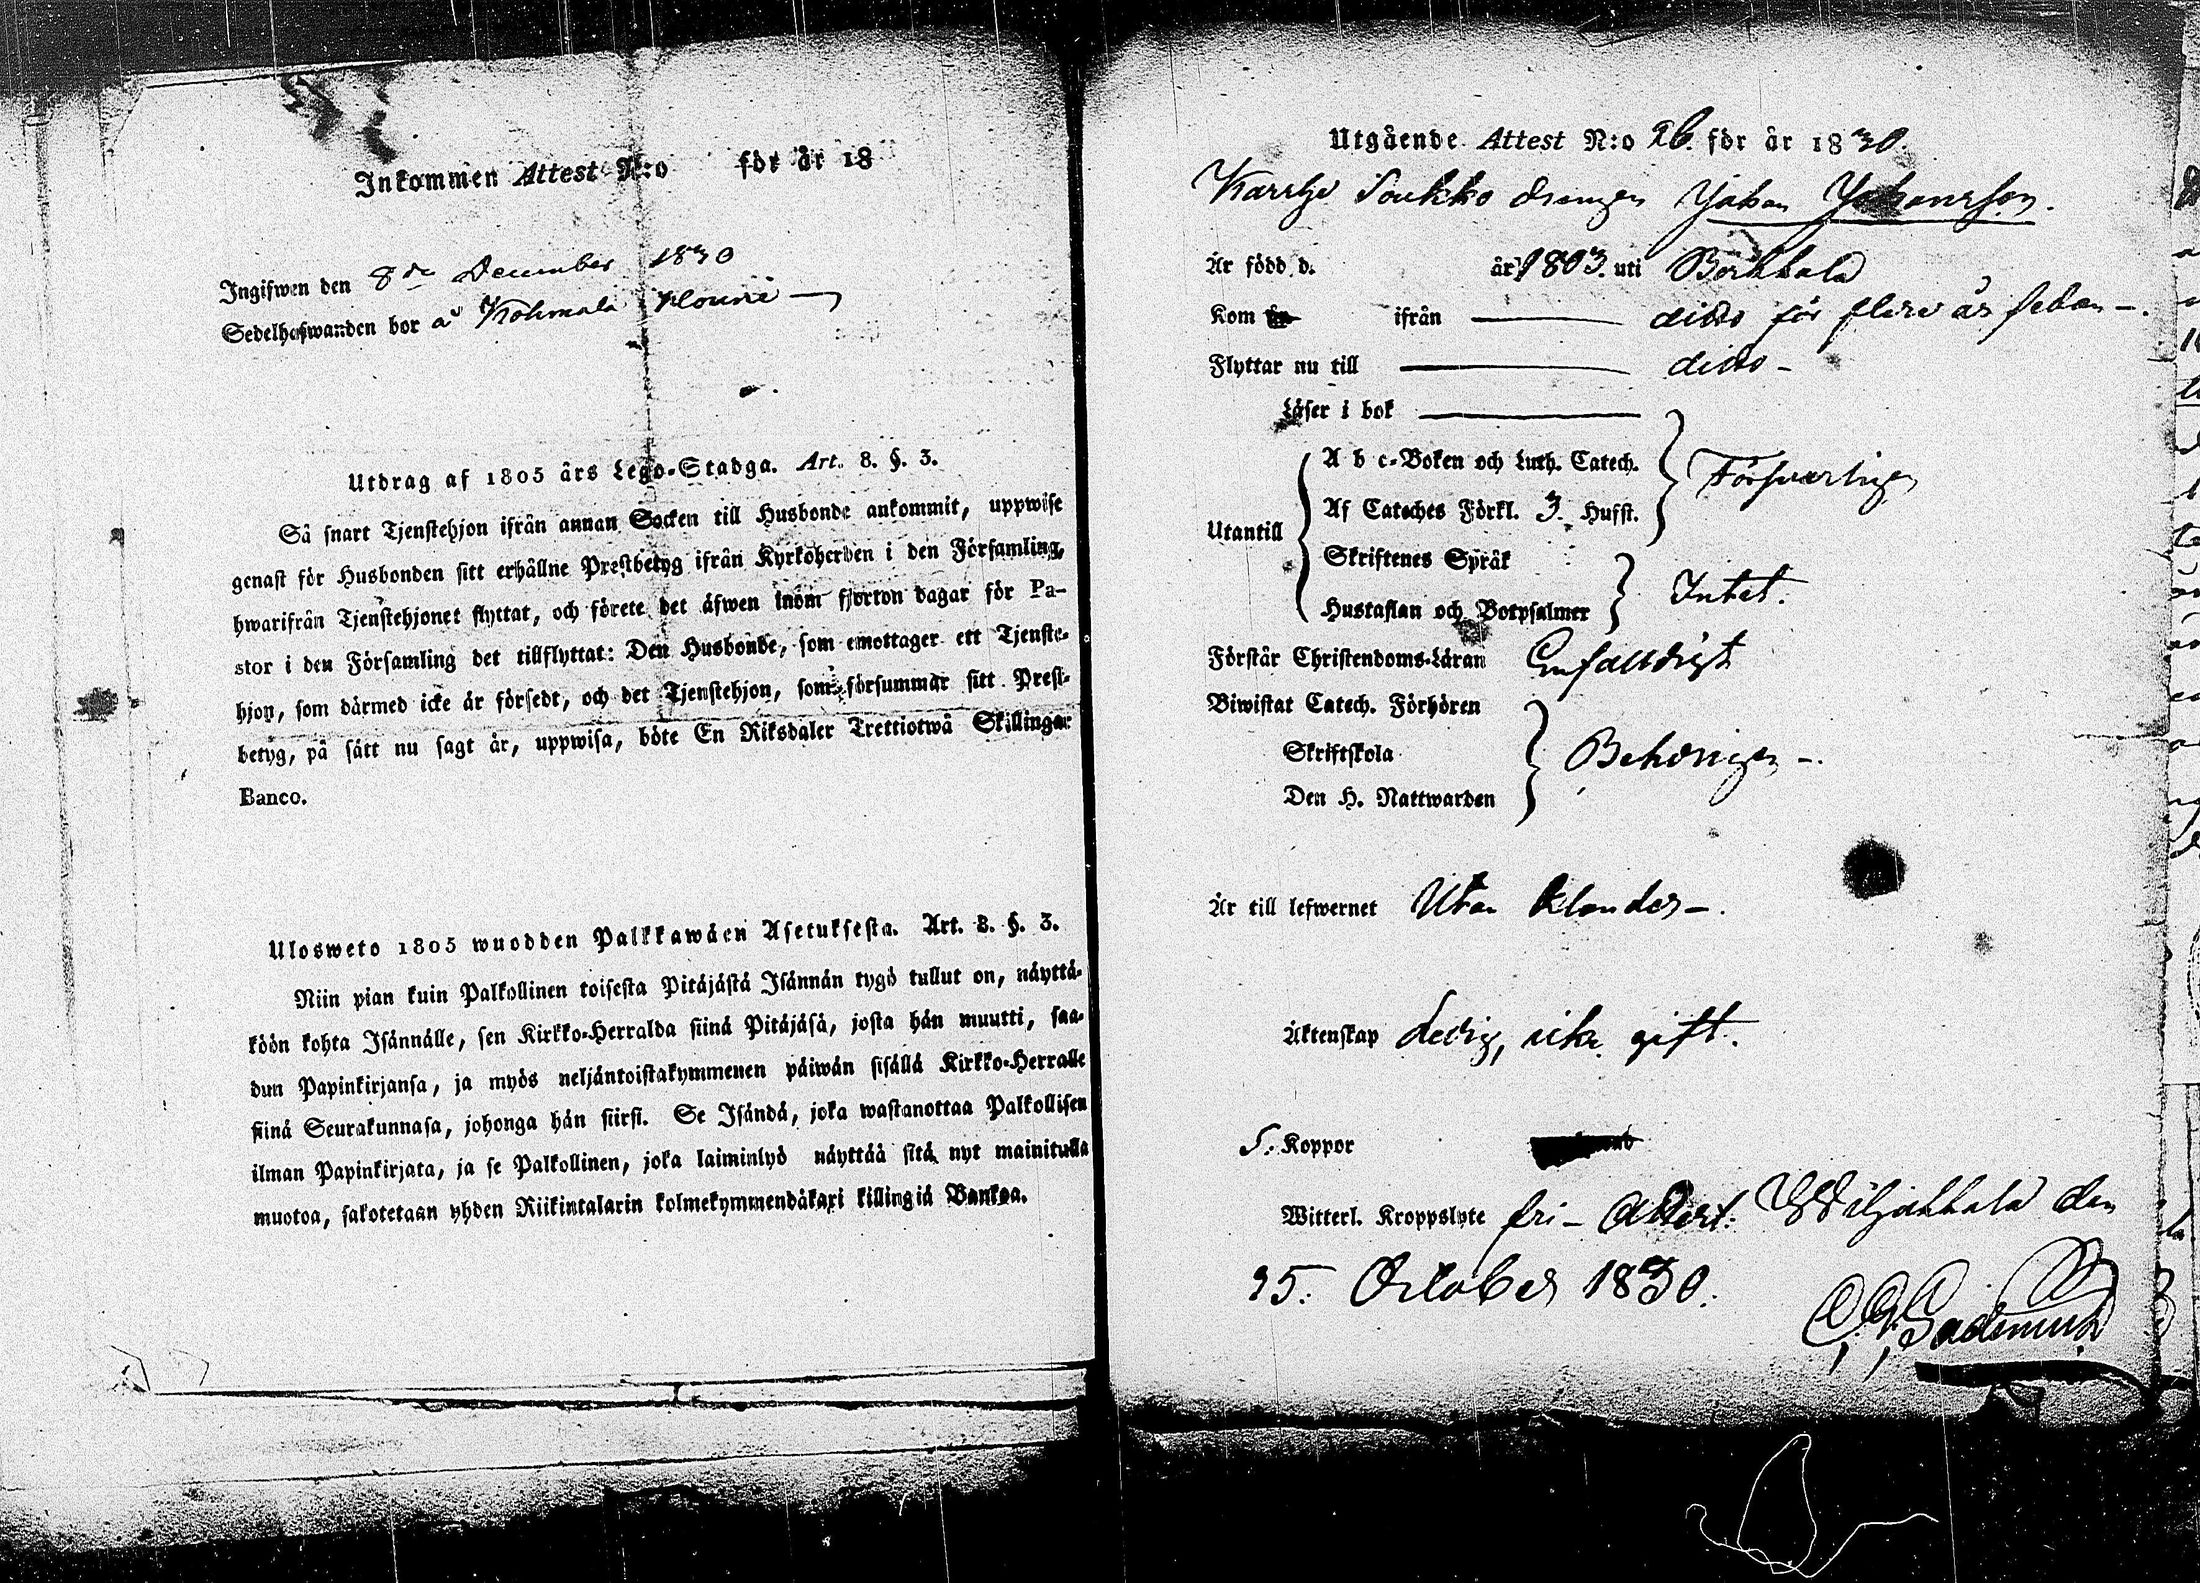 Inkommen Attest N:o för år 18
Ingifwen den 8de December 1830
Sedelhafwanden bor å Kohmala
Utdrag af 1805 års Lego-Stadga. Art. 8. §. 3.
Så snart Tjenstehjon ifrån annan Socken till Husbonde ankommit, uppwise
genast för Husbonden sitt erhållne Prestbetyg ifrån Kyrkoherden i den Församling,
hwarifrån Tjenstehjonet flyttat, och förete det äfwen inom fjorton dagar för Pa-
stor i den Församling det tillflyttat: Den Husbonde, som emottager ett Tjenste-
hjon, som därmed icke är försedt, och det Tjenstehjon, som försummar sitt Prest-
betyg, på sätt nu sagt är, uppwisa, böte En Riksdaler Trettiotwå Skillingar
Banco.
Ulosweto 1805 wuodden Palkkawäen Asetuksesta. Art. 8. §. 3.
Niin pian kuin Palkollinen toisesta Pitäjästä Isännän tygö tullut on, näyttä-
köön kohta Isännälle, sen Kirkko-Herralda siinä Pitäjäsä, josta hän muutti, saa-
dun Papinkirjansa, ja myös neljäntoistakymmenen päiwän sisällä Kirkko-Herralle
siinä Seurakunnasa, johonga hän siirsi. Se Isändä, joka wastanottaa Palkollisen
ilman Papinkirjata, ja se Palkollinen, joka laiminlyö näyttää sitä nyt mainitulla
muotoa, sakotetaan yhden Riikintalarin kolmekymmendäkaxi killingiä Bankoa.
Utgående Attest N:o 26. för år 1830.
Soukko drengen Johan Johansson.
Är född d. år 1803. uti
Kom ifrån dito för flere år sedan -.
Flyttar nu till dito -
Läser i bok
Utantill
A b c-Boken och Luth. Catech.
Af Cateches Förkl. 3. Hufst.
Försvarligen
Skriftenes Språk
Hustaflan och Botpsalmer
Intet.
Förstår Christendoms-Läran Enfalldigt
Biwistat Catech. Förhören
Skriftskola
Den H. Nattwarden
Behörigen -.
Är till lefwernet Utan klander -.
Äktenskap Ledig, icke gift.
S. Koppor
Witterl. Kroppslyte fri - Attest: Wiljakkala den
25. October 1830.